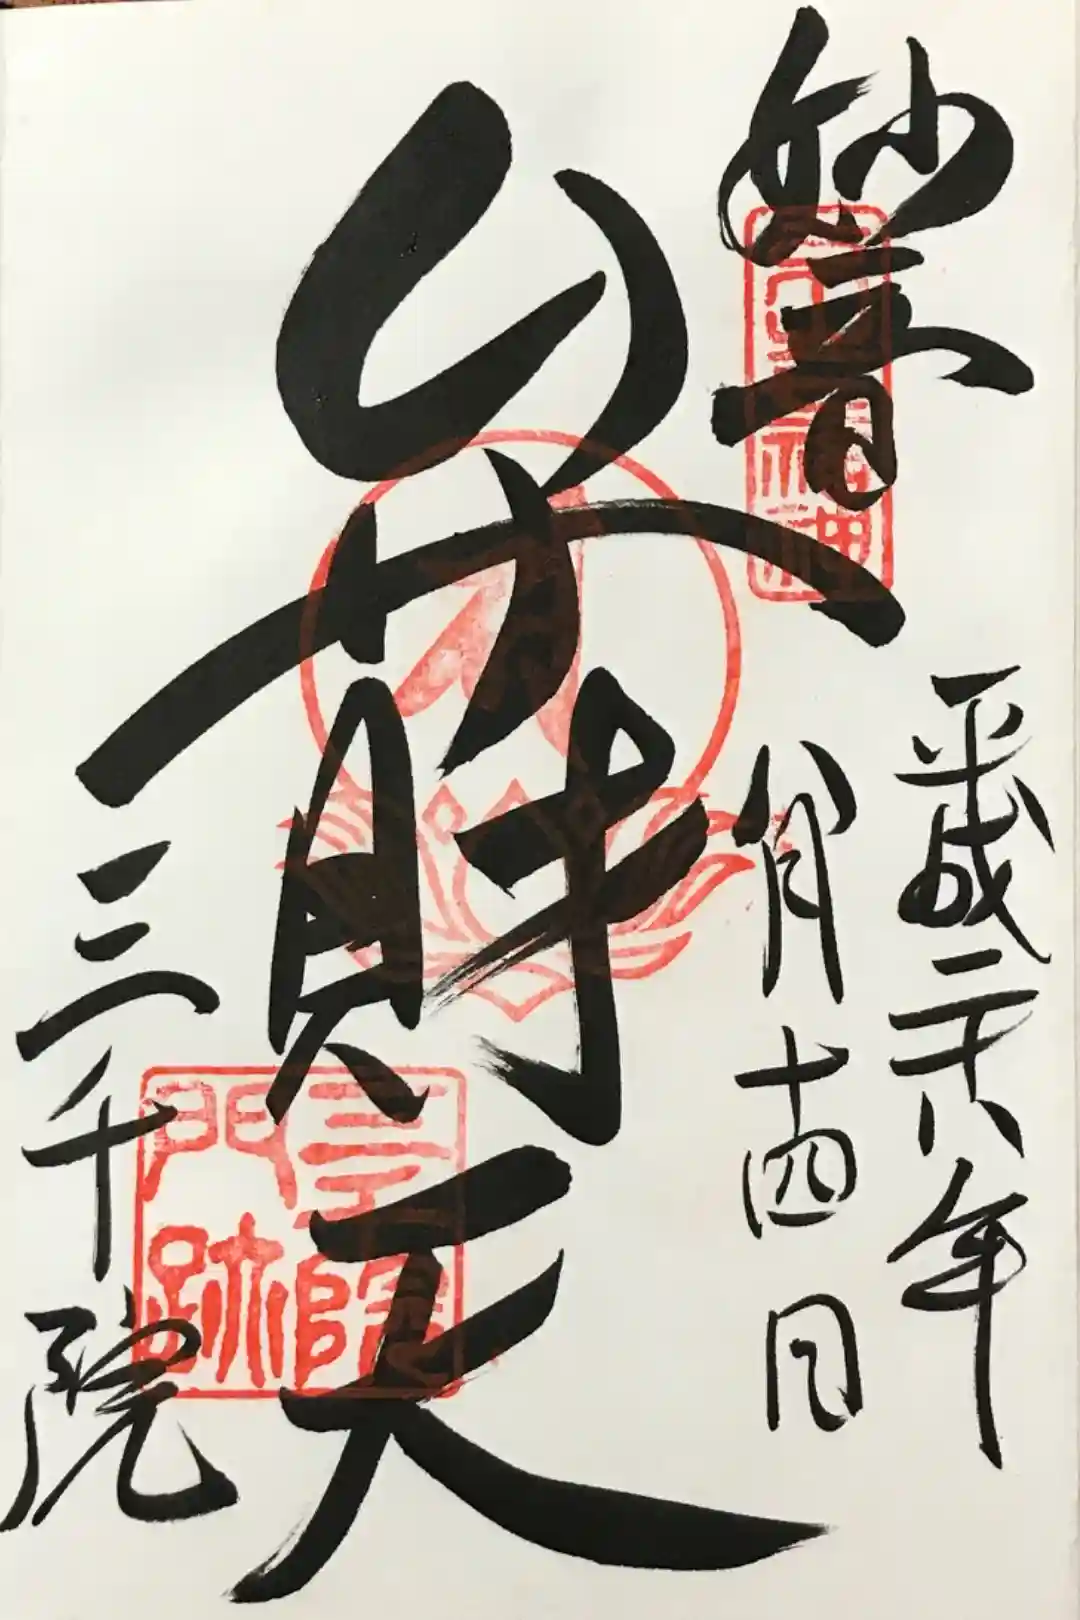 妙音
平成二十八年
八月十四日
弁財天
三千院
三千院
門跡